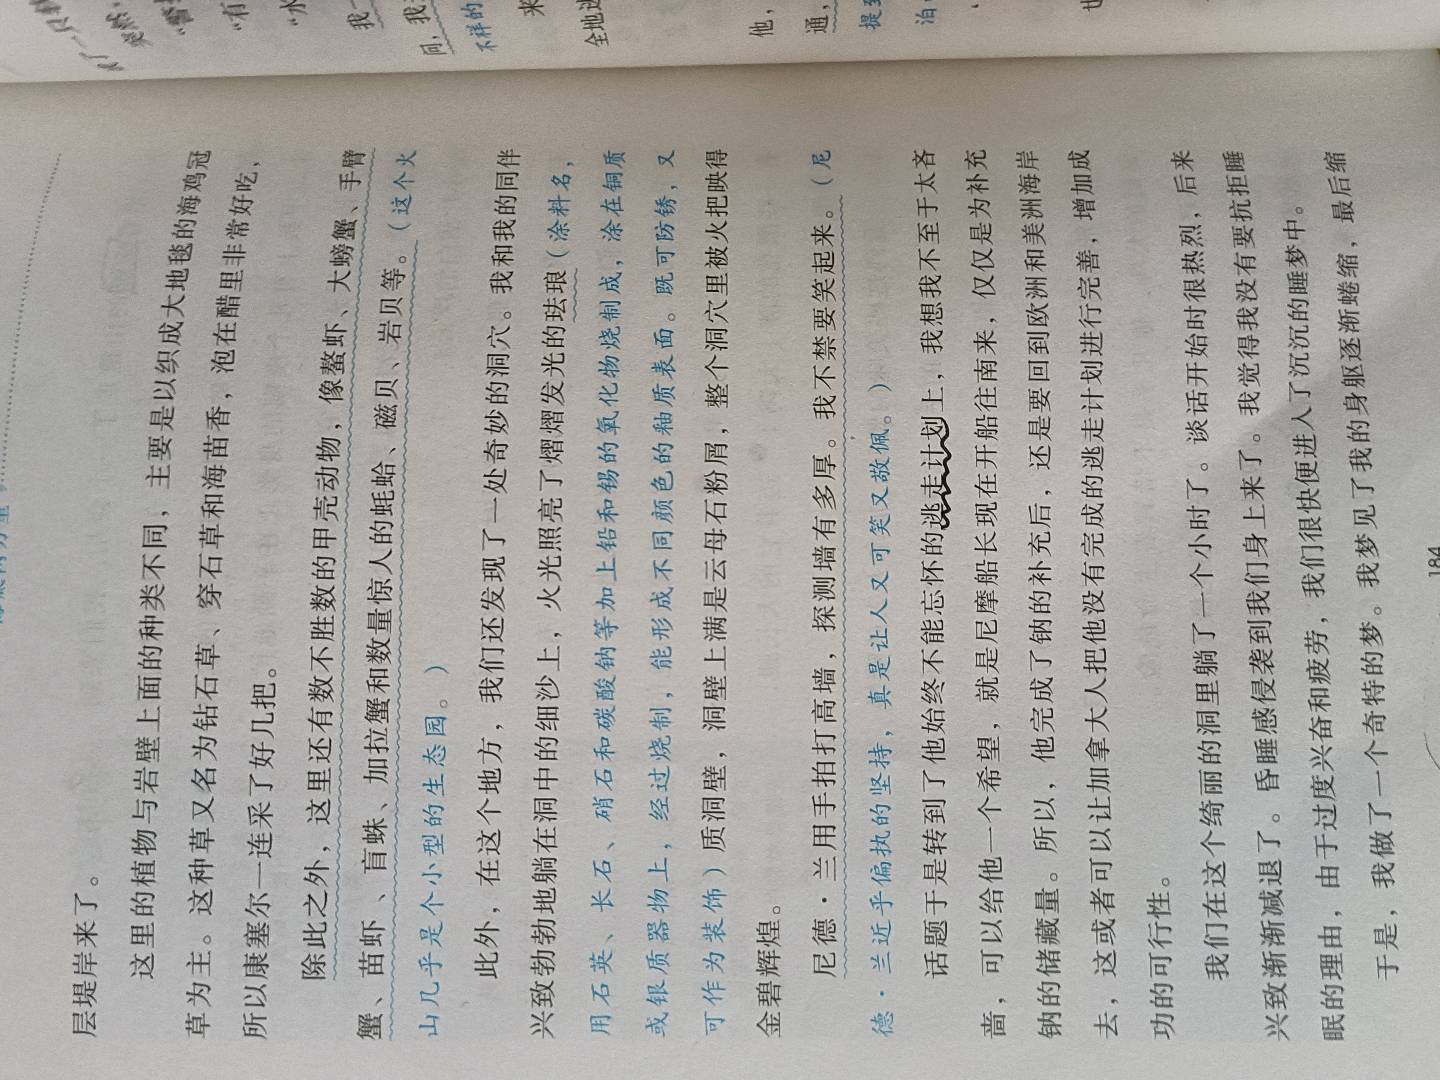 层堤岸来了。
这里的植物与岩壁上面的种类不同，主要是以织成大地毯的海鸡冠
草为主。这种草又名为钻石草、穿石草和海苗香，泡在醋里非常好吃，
所以康塞尔一连采了好几把。
除此之外，这里还有数不胜数的甲壳动物，像螯虾、大螃蟹、手臂
蟹、苗虾、盲蛛、加拉蟹和数量惊人的蚝蛤、磁贝、岩贝等。（这个火
山几乎是个小型的生态园。）
此外，在这个地方，我们还发现了一处奇妙的洞穴。我和我的同伴
兴致勃勃地躺在洞中的细沙上，火光照亮了熠熠发光的珐琅（涂料名，
用石英、长石、硝石和碳酸钠等加上铅和锡的氧化物烧制成，涂在铜质
或银质器物上，经过烧制，能形成不同颜色的釉质表面。既可防锈，又
可作为装饰）质洞壁，洞壁上满是云母石粉屑，整个洞穴里被火把映得
金碧辉煌。
尼德·兰用手拍打高墙，探测墙有多厚。我不禁要笑起来。（尼
德·兰近乎偏执的坚持，真是让人又可笑又敬佩。）
话题于是转到了他始终不能忘怀的逃走计划上，我想我不至于太吝
啬，可以给他一个希望，就是尼摩船长现在开船往南来，仅仅是为补充
钠的储藏量。所以，他完成了钠的补充后，还是要回到欧洲和美洲海岸
去，这或者可以让加拿大人把他没有完成的逃走计划进行完善，增加成
功的可行性。
我们在这个绮丽的洞里躺了一个小时了。谈话开始时很热烈，后来
兴致渐渐减退了。昏睡感侵袭到我们身上来了。我觉得我没有要抗拒睡
眠的理由，由于过度兴奋和疲劳，我们很快便进入了沉沉的睡梦中。
于是，我做了一个奇特的梦。我梦见了我的身躯逐渐蜷缩，最后缩
184
"有
"水
我一
间，我
不祥的
来
全地
他，
通，
提到
泊